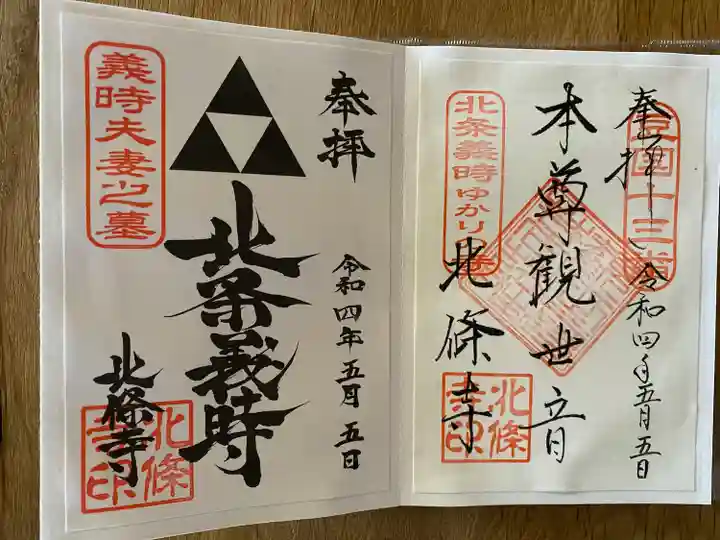 奉拝
豆國十三番
令和四年五月五日
本尊観世音
北条義時ゆかり
北條寺
北條寺印
奉拝
令和四年五月五日
北条義時
義時夫妻之墓
北條寺
北條寺印